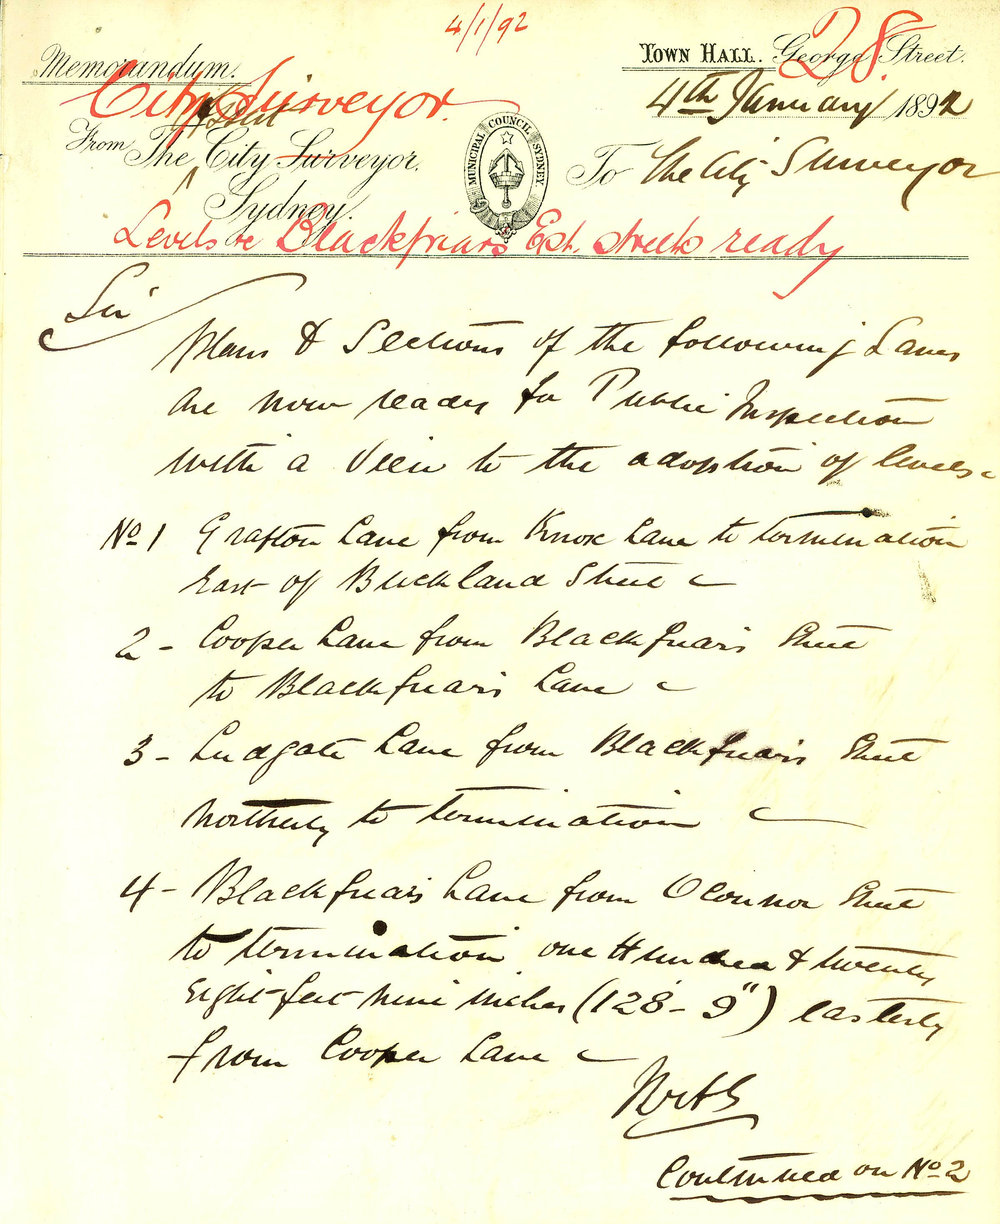 4/1/92
28.
Memorandum.
Town Hall. George Street.
City Surveyor.
4th January 1892
Assist
From The City Surveyor.
Sydney.
MUNICIPAL COUNCIL SYDNEY
To The City Surveyor
Levels re Blackfriars Est. streets ready
Sir
Plans & Sections of the following Lanes
are now ready for Public Inspection
with a View to the adoption of levels
No 1 Grafton Lane from Knox Lane to termination
East of Buckland Street
2 - Cooper Lane from Blackfriars Street
to Blackfriars Lane
3 - Ludgate Lane from Blackfriars Street
Northerly to termination
4 - Blackfriars Lane from OConnor Street
to termination one Hundred & twenty
Eight feet nine inches (128 - 9") Easterly
from Cooper Lane
Continued on No 2